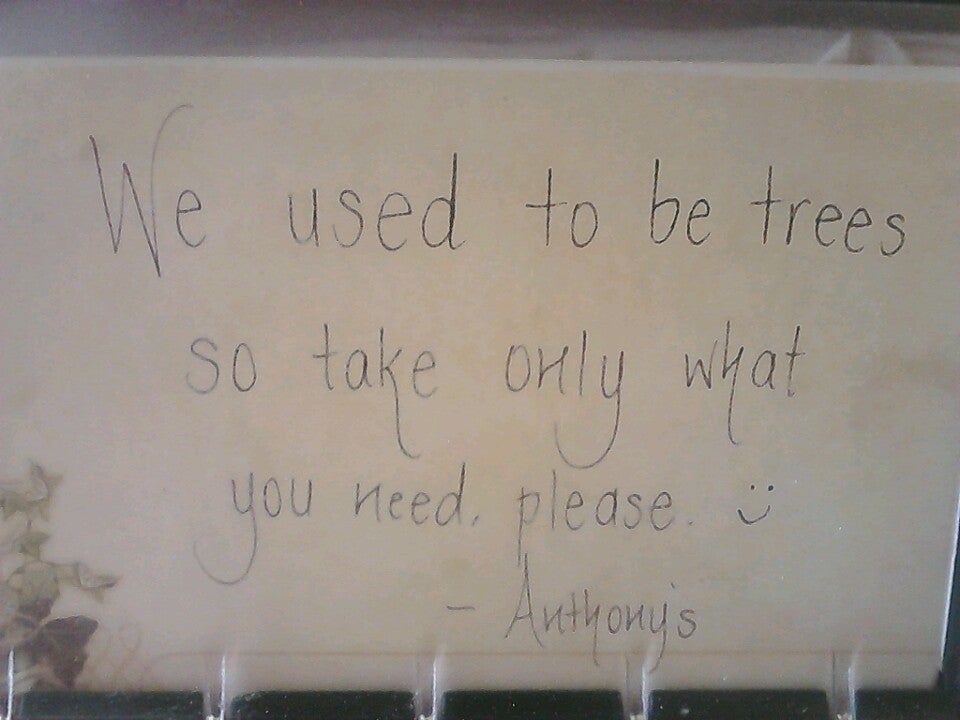 We used to be trees
so take only what
you need, please. :)
- Anthony's